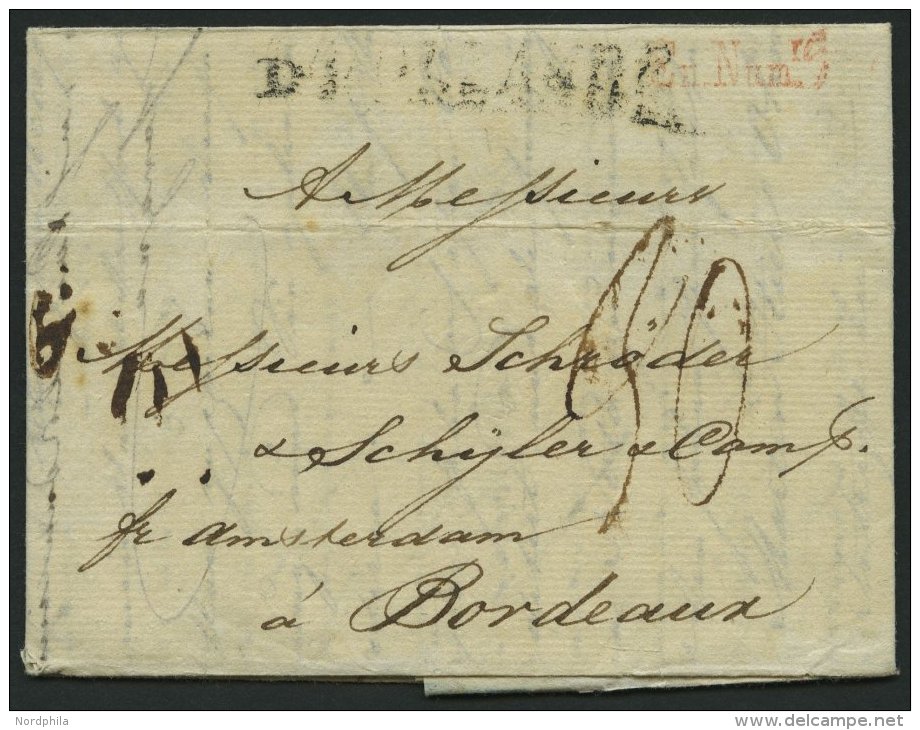 En Num.
A Messieurs
Messieurs Schröder
& Schÿler & Comp.
fr Amsterdam
à Bordeaux
Nordphila
www.delcampe.net